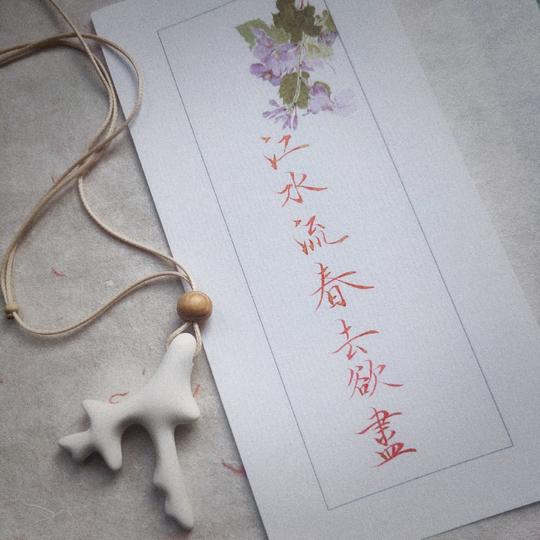 江水流春去欲盡